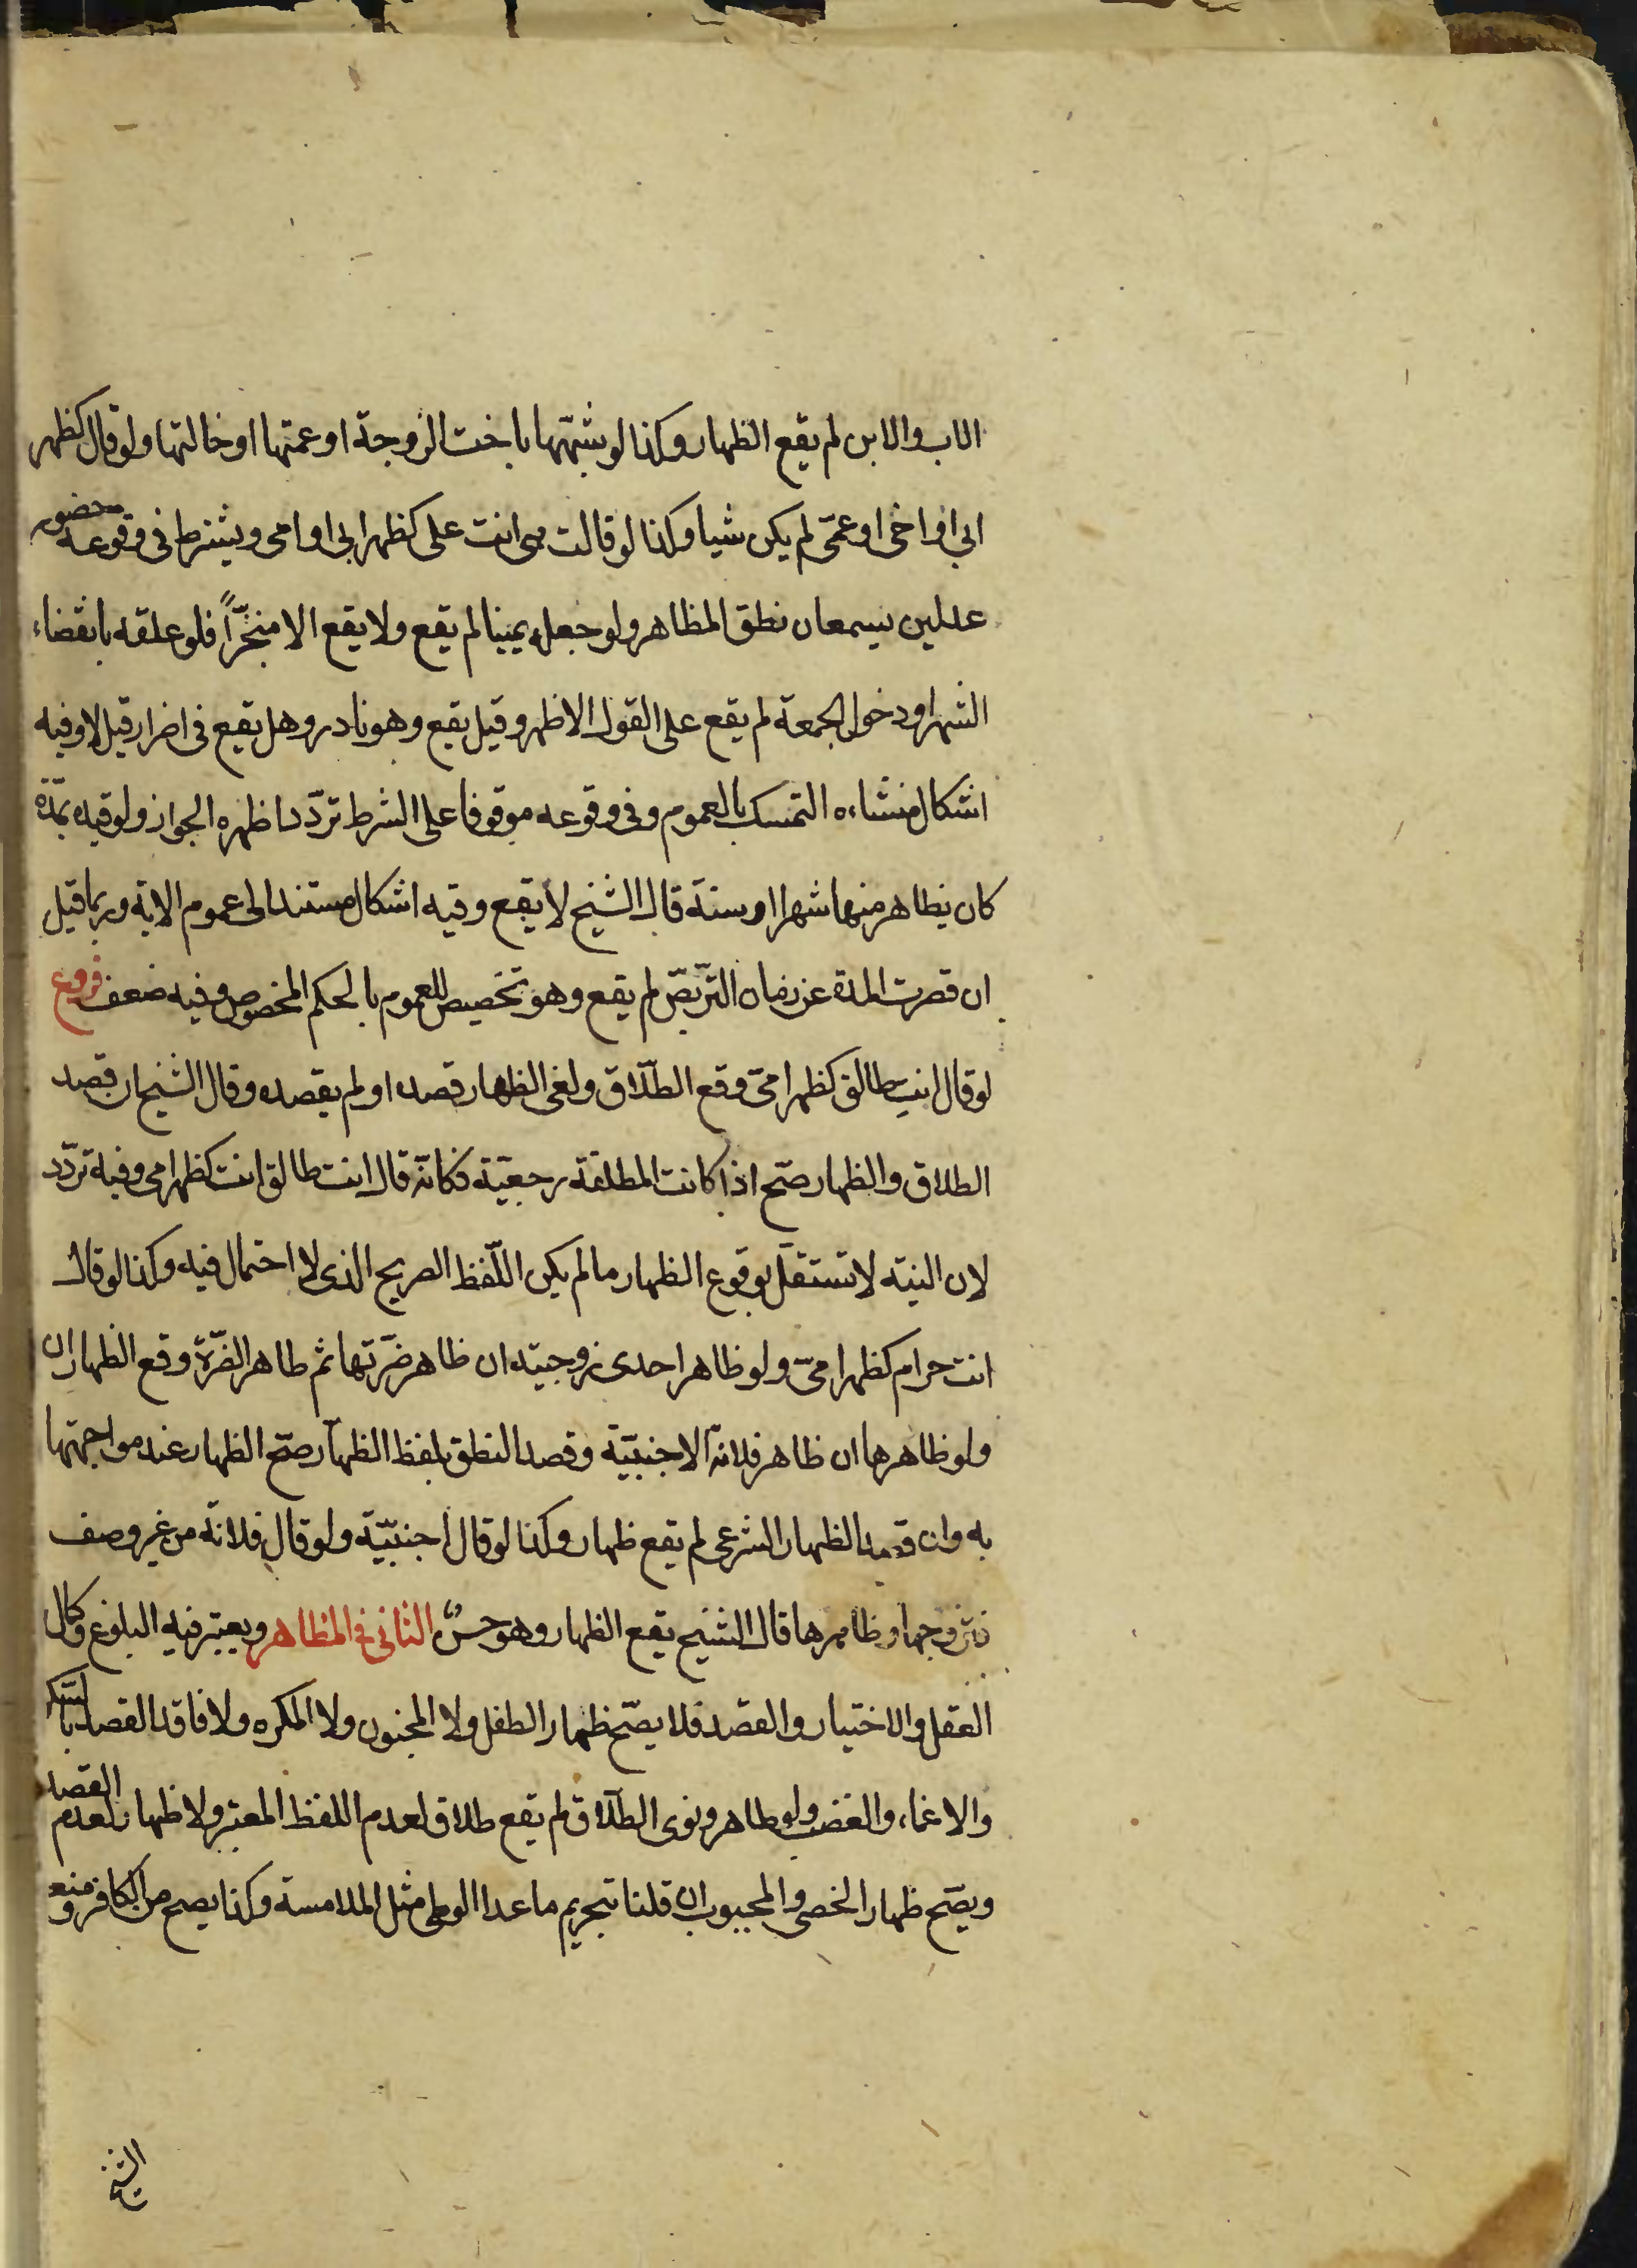 الاب والابن لم يقع الظهار وكذا لو شبهها باخت الزوجة او عمتها او خالتها ولو قال كظهر
ابى او اخى او عمّى لم يكن شيا وكذا لو قالت هى انت على كظهر ابى او امى ويشترط فى وقوعه حضور
عدلين يسمعان نطق المظاهر ولو جعله يمينا لم يقع ولا يقع الا منجّزاً فلو علقه بانقضاء
الشهر او دخول الجمعة لم يقع على القول الاظهر وقيل يقع وهو نادر وهل يقع فى اضرار قيل لا وفيه
اشكال منشاءه التمسك بالعموم وفى وقوعه موقوفا على الشرط تردّد اظهره الجواز ولو قيده بمدّة
كان يظاهر منها شهرا او سنة قال الشيخ لا يقع وفيه اشكال مستند الى عموم الاية وربما قيل
ان قصرت المدة عن زمان التربّص لم يقع وهو تخصيص للعموم بالحكم المخصوص وفيه ضعف فروع
لو قال انت طالق كظهر امىّ وقع الطلاق ولغى الظهار قصده او لم يقصده وقال الشيخ ان قصد
الطلاق والظهار صحّ اذا كانت المطلقة رجعيّة فكانّه قال انت طالق انت كظهر امى وفيه تردّد
لان النيته لا تستقل بوقوع الظهار ما لم يكن اللّفظ الصريح الذى لا احتمال فيه وكذا لو قال
انت حرام كظهر امىّ ولو ظاهر احدى زوجيته ان ظاهر ضرّتها ثم ظاهر الضرّة وقع الظهاران
ولو ظاهرها ان ظاهر فلانة الاجنبيّة وقصد النطق بلفظ الظهار صحّ الظهار عند مواجهتها
به وان قصد الظهار الشرعى لم يقع ظهار وكذا لو قال اجنبيّة ولو قال فلانة من غير وصف
فتزوجها وظاهرها قال الشيخ يقع الظهار وهو حسنٌ الثانى فى المظاهر ويعتبر فيه البلوغ وكمال
العقل والاختيار والقصد فلا يصحّ ظهار الطفل ولا المجنون ولا المكره ولا فاقد القصد بالسّكر
والاغماء والغضب ولو ظاهر ونوى الطلاق لم يقع طلاق لعدم اللفظ المعتبر ولا ظهار لعدم القصد
ويصّح ظهار الخصى والمجبوب ان قلنا تبحريم ما عدا الوطى مثل الملامسة وكذا يصح من الكافر ومنعه
الشيخ